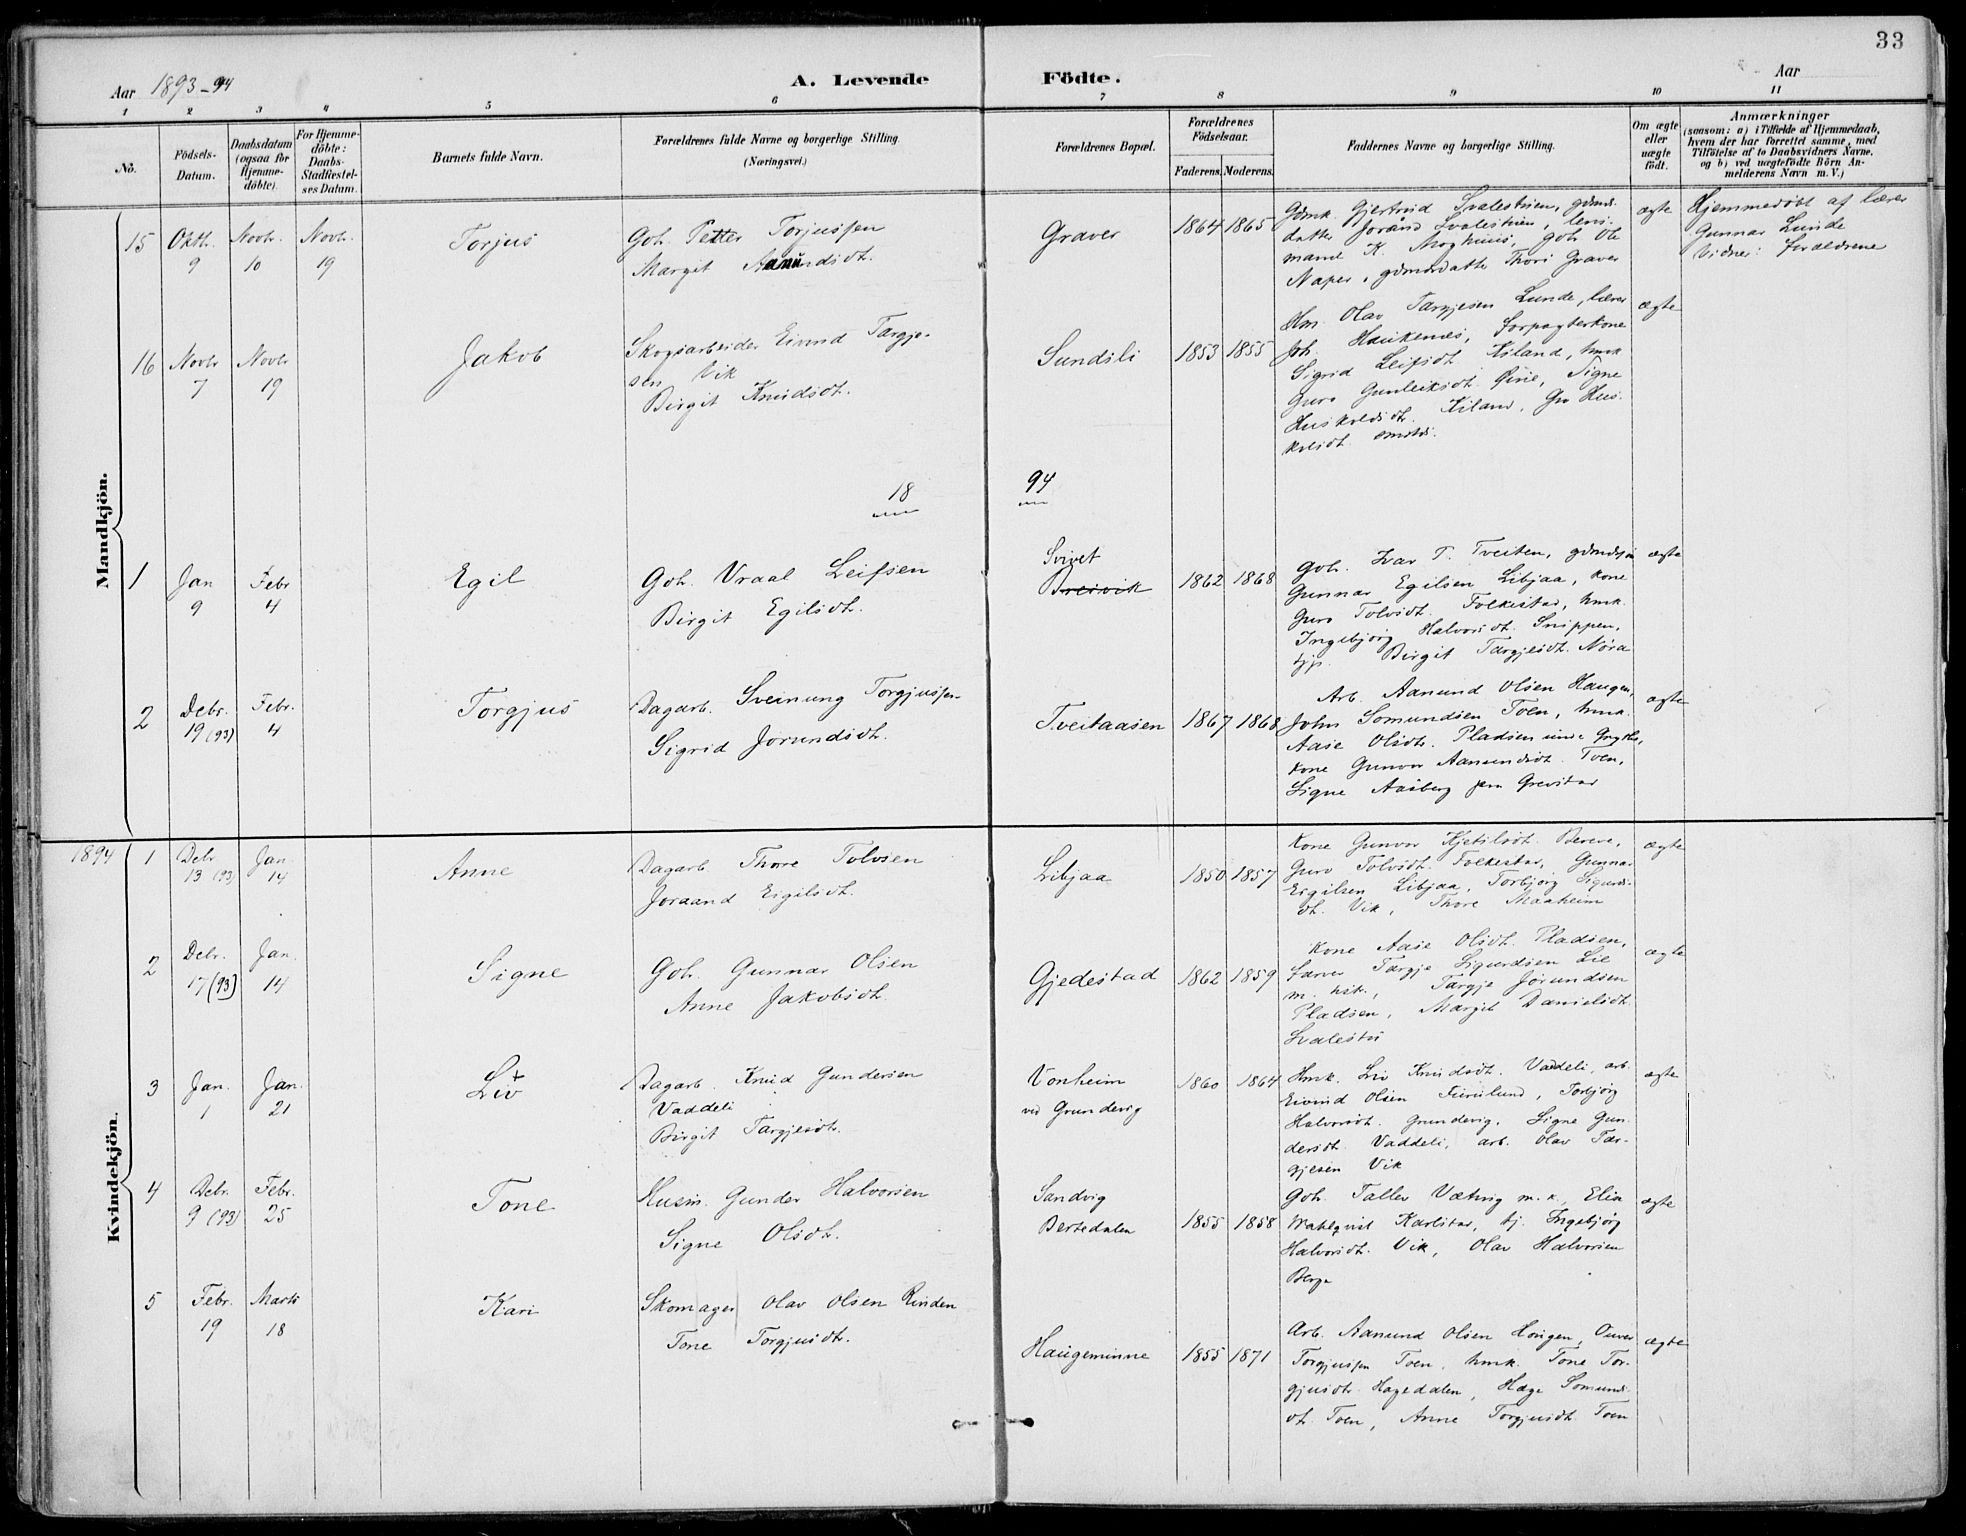 33
Aar 1893-94
A. Levende Födte.
Aar
1 2 3 4 5 6 7 8 9 10 11
No.
Födsels-Datum.
Daabsdatum (ogsaa for Hjemme-döbte).
For Hjemme-döbte: Daabs-Stadfæstel-ses Datum.
Barnets fulde Navn.
Forældrenes fulde Navne og borgerlige Stilling.
(Næringsvei.)
Forældrenes Bopæl.
Forældrenes Födselsaar.
Faderens. Moderens.
Faddernes Navne og borgerlige Stilling.
Om ægte eller uægte födt.
Anmærkninger
(saasom: a) i Tilfælde af Hjemmedaab,
hvem der har forrettet samme, med
Tilföielse af to Daabsvidners Navne,
og b) ved uægtefödte Börn An-
melderens Navn m. V.)
Mandkjön.
15 Oktbr. 9 Novbr. 10 Novbr. 19
Torjus
Gbr. Petter Torjussen
Margit Aanundsdt.
Graver
1864 1865
Gdmk. Gjertrud Svalestuen, gdmds.
datter Jorand Svalestuen, lens-
mand K. Moghuus, gbr. Ole
Naper, gdmdsdatter Thori Graver
ægte
Hjemmedøbt af lærer
Gunnar Lunde
Vidner: forældrene
16 Novbr 7 Novbr 19
Jakob
Skogsarbeider Eivind Targje-
sen Vik
Birgit Knudsdt.
Sundsli
1853 1855
Hm. Olav Targjesen Lunde, lærer
Joh. Haukenes, forpagterkone
Sigrid Leifsdt. Kiland, hmk
Guro Gunleiksdt. Øine, Signe
Huskoldsdt. Kiland, Gro Hus-
koldsdt. smstds.
ægte
18 94
1 Jan 9 Febr 4
Egil
Gbr. Vraal Leifsen
Birgit Egilsdt.
Svivet
Breivik
1862 1868
Gbr. Ivar T. Tveiten, gdmdssøn
Gunnar Egilsen Libjaa, kone
Guro Tolvsdt. Folkestad, hmk.
Ingebjørg Halvorsdt. Snippen,
tjp. Birgit Targjesdt. Nøra
ægte
2 Debr. 19 (93) Febr. 4
Torgjus
Dagarb. Sveinung Torgjussen
Sigrid Jørundsdt.
Tveitaasen
1867 1868
Arb. Aanund Olsen Haugen,
John Somundsen Toen, hmk.
Aase Olsdt. Pladsen
kone Gunvor Aanundsdt. Toen,
Signe Aasberg
ægte
1894
Kvindekjön.
1 Debr 13 (93) Jan. 14
Anne
Dagarb Thore Tolvsen
Joraand Eigilsdt.
Libjaa
1850 1857
Kone Gunvor Kjetilsdt.
Guro Tolvsdt. Folkestad, Gunnar
Eigilsen Libjaa, Torbjørg Sigurds-
dt. Vik, Thore Maaheim
ægte
2 Debr. 17 (93) Jan. 14
Signe
Gbr. Gunnar Olsen
Anne Jakobsdt.
Gjedestad
1862 1859
Kone Aase Olsdt. Pladsen,
Lærer Targje Sigurdsen Lie
m. hst., Targje Jørundsen
Pladsen, Margit Danielsdt.
Svalestu
ægte
3 Jan. 1 Jan. 21
Liv
Dagarb. Knud Gundersen
Vaddeli
Birgit Targjesdt.
Vonheim
ved Grundevig
1860 1864
Hmk. Liv Knudsdt. Vaddeli, arb.
Eivind Olsen Furulund, Torbjørg
Halvorsdt. Grundevig, Signe Gun-
dersdt. Vaddeli, arb. Olav Tar-
gjesen Vik
ægte
4 Debr. 9 (93) Febr. 25
Tone
Husm. Gunder Halvorsen
Signe Olsdt.
Sandvig
Bertedalen
1855 1858
Gbr. Tallev Vætvig m. k., Elia
Mahlqvist Karlstad, tj. Ingebjørg
Halvorsdt. Vik, Olav Halvorsen
Berge
ægte
5 Febr. 19 Marts 18
Kari
Skomager Olav Olsen Rinden
Tone Torgjusdt.
Haugeminne
1855 1871
Arb. Aanund Olsen Haugen, Onver
Torgjussen Toen, hmk. Tone Tor-
gjusdt. Hagedalen, Hæge Somunds-
dt. Toen, Anne Torgjusdt. Toen
ægte